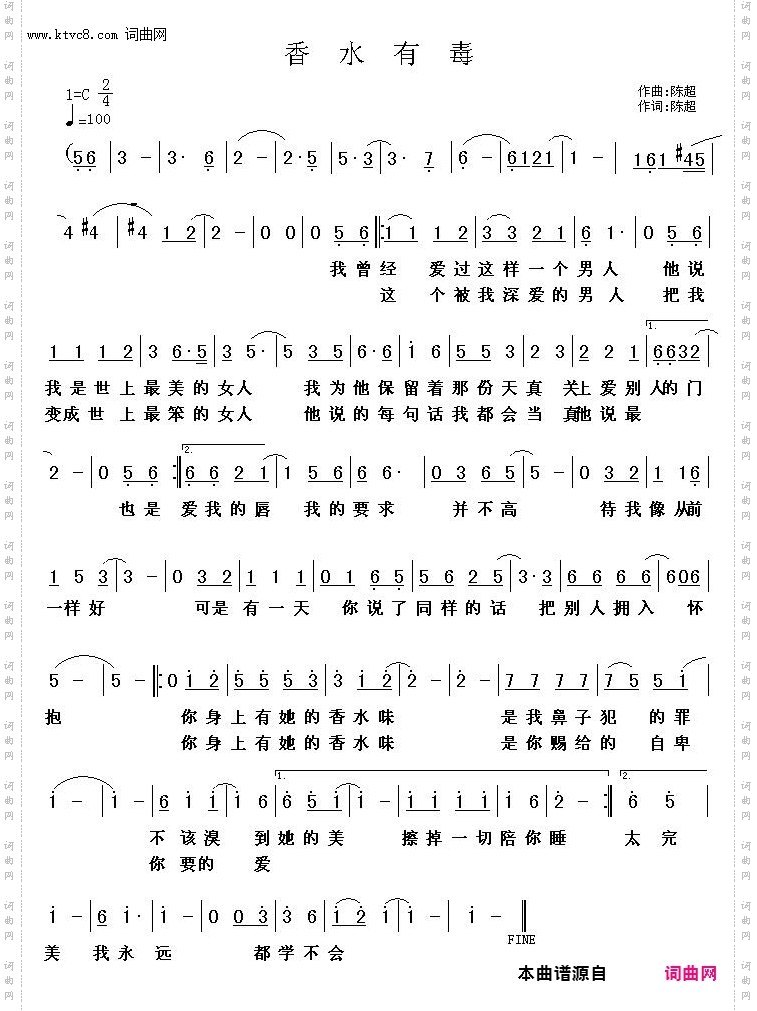 www.ktvc8.com 词曲网
香水有毒
1=C 2/4
作曲:陈超
♩=100
作词:陈超
(56 3 - 3· 6 2 - 2·5 5·3 3· 7 6 - 6121 1 - 161 #45
4 #4 #4 12 2 - 0 0 0 56 :11 12 33 21 6 1· 0 56
我曾经 爱过这样一个男人 他说
这 个被我深爱的男人 把我
11 12 3 6·5 35· 5 35 6·6 i6 55 32 22 1 1. 6632
我是世上最美的女人 我为他保留着那份天真 关上爱别人的门
变成世上最笨的女人 他说的每句话我都会当 真他说最
2 - 0 56 : 2. 66 21 15 6 6· 03 65 5 - 0 32 1 16
也是 爱我的唇 我的要求 并不高 待我像从前
1 53 3 - 0 32 11 1 01 65 56 25 66 66 606
一样好 可是有一天 你说了同样的话 把别人拥入 怀
5 - 5 - :0 i2 55 53 3 3 2 - 2 - 77 77 75 5i
抱 你身上有她的香水味 是我鼻子犯 的罪
你身上有她的香水味 是你赐给的 自卑
i - i - 6i i i6 1. 6 5i i - ii ii i6 2 - : 2. 6 5
不该溴 到她的美 擦掉一切陪你睡 太完
你要的 爱
i - 6 i· i - 0 03 36 i2 i i - FINE
美 我永 远 都学不会
本曲谱源自 词曲网
词曲网
词曲网
词曲网
词曲网
词曲网
词曲网
词曲网
词曲网
词曲网
词曲网
词曲网
词曲网